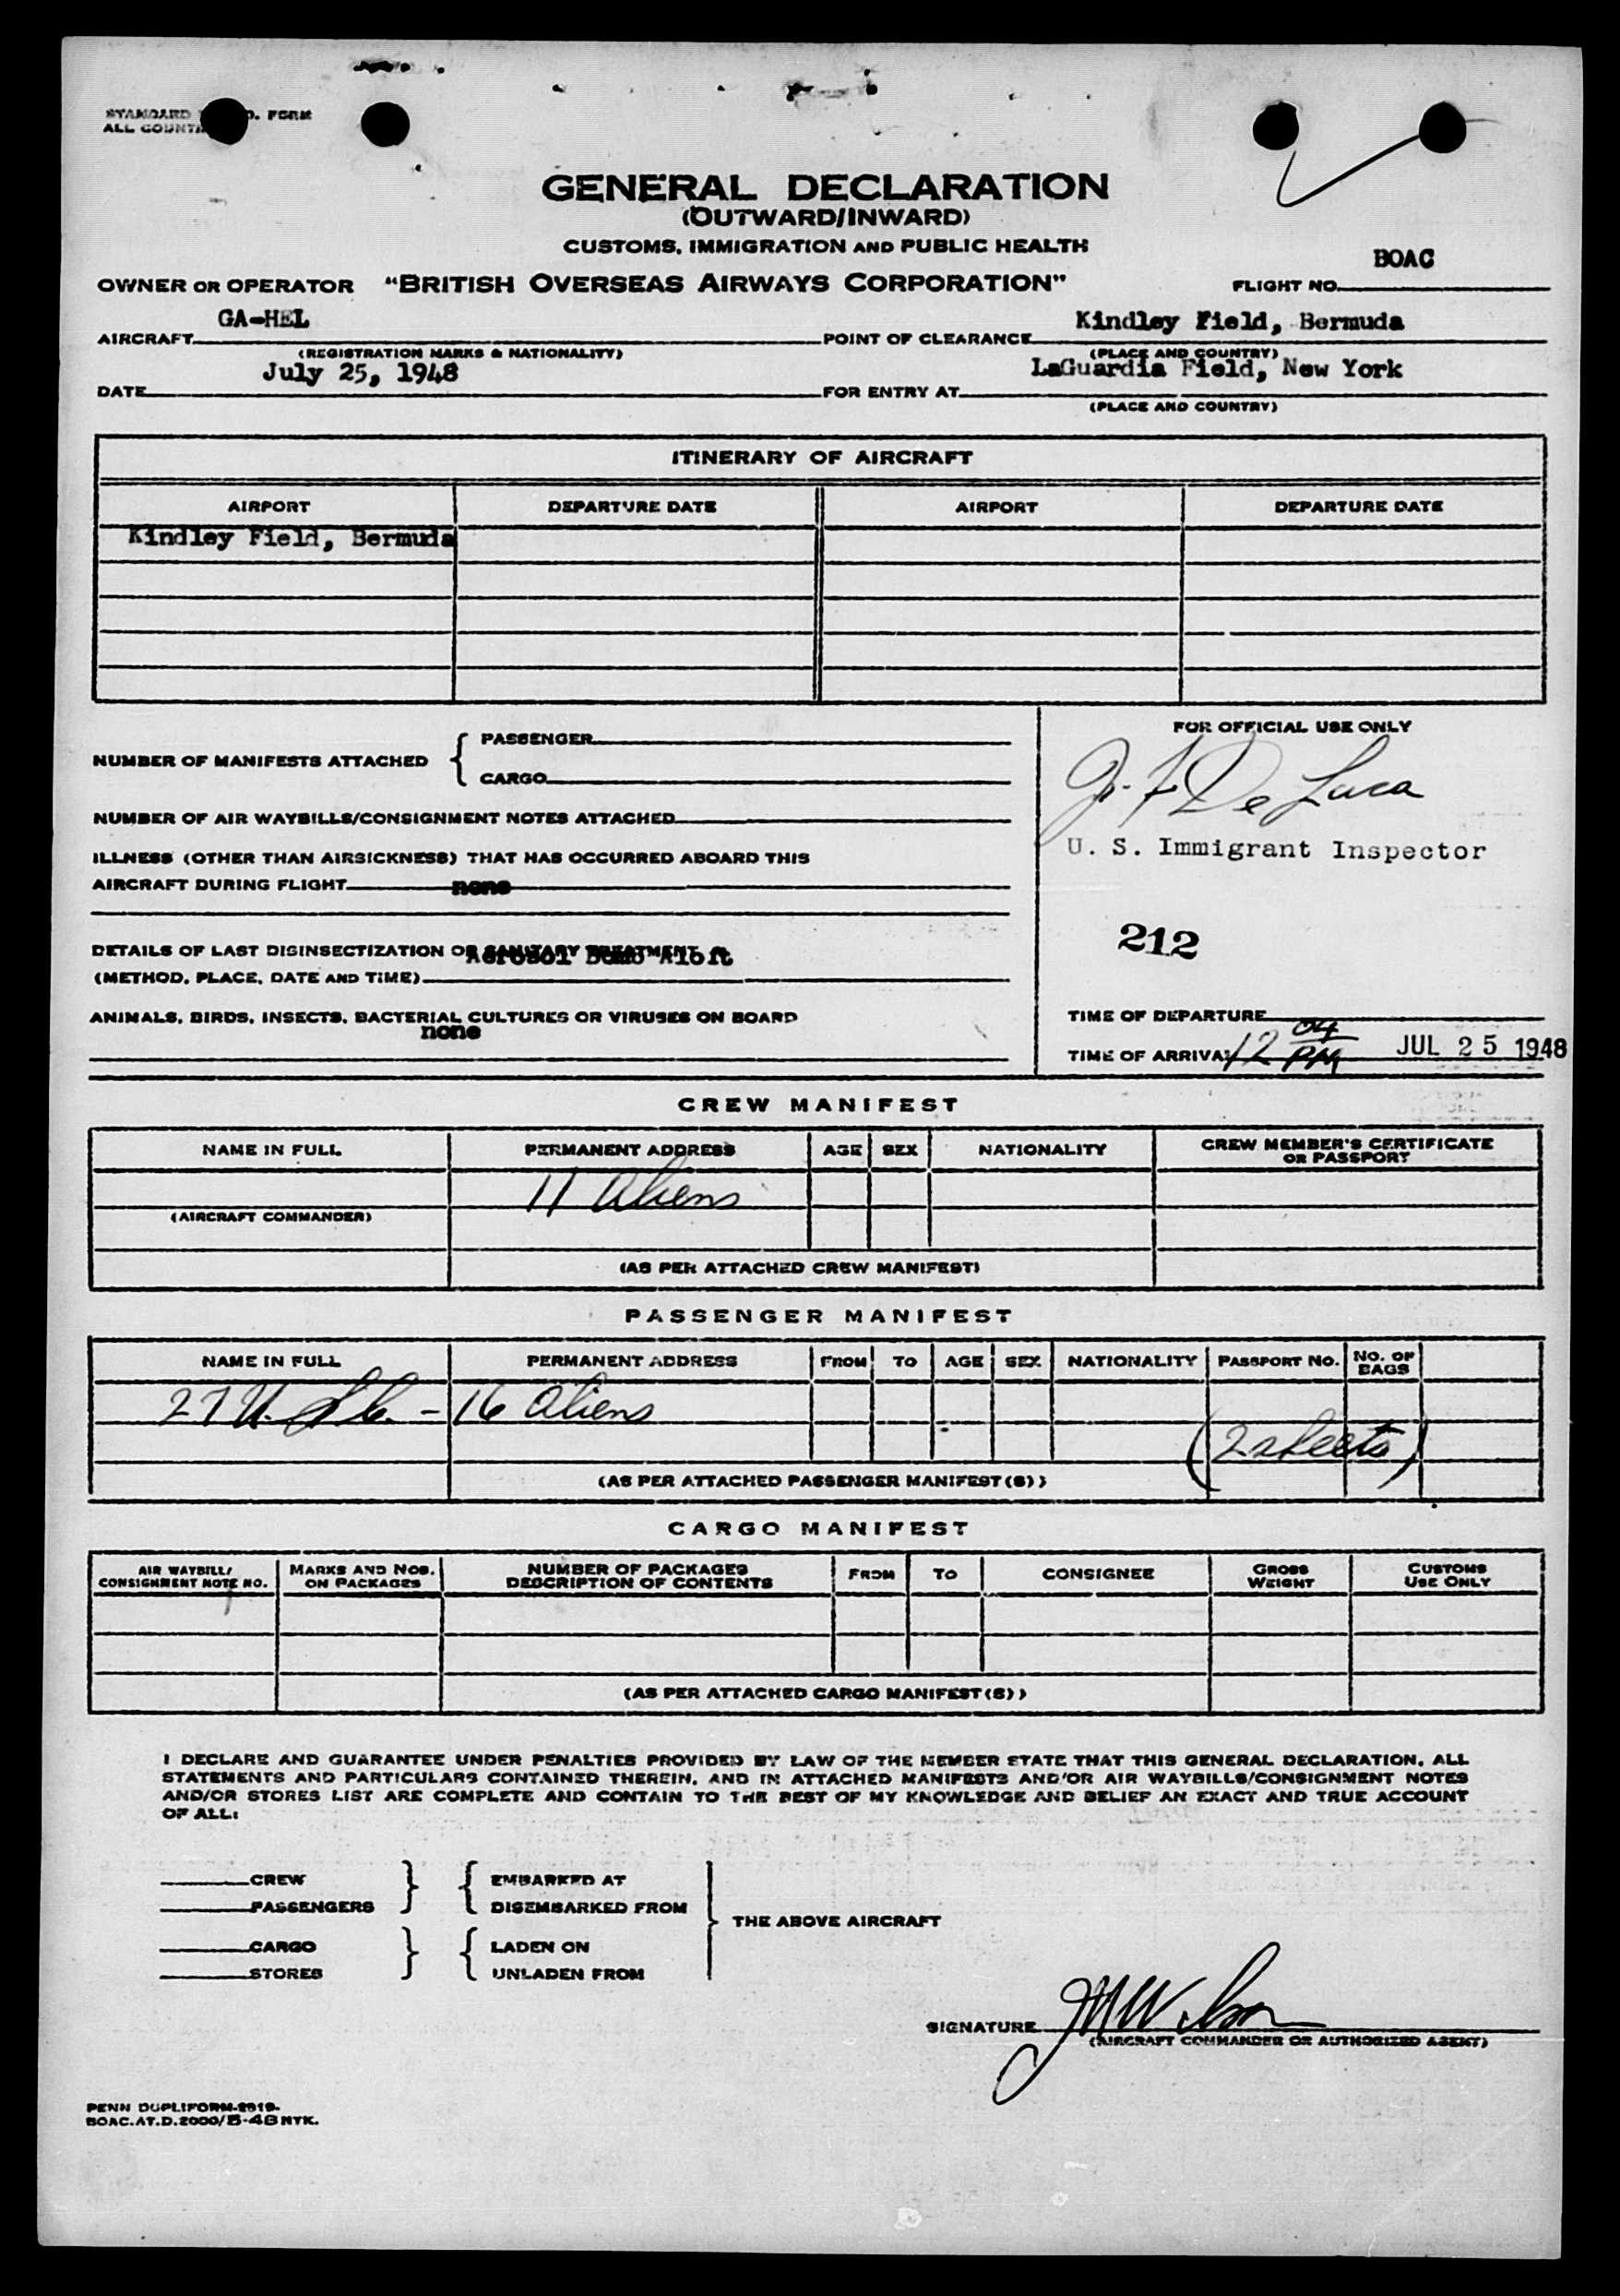 STANDARD O. FORM
ALL COUNT
GENERAL DECLARATION
(OUTWARD/INWARD)
CUSTOMS, IMMIGRATION AND PUBLIC HEALTH
BOAC
OWNER OR OPERATOR "BRITISH OVERSEAS AIRWAYS CORPORATION" FLIGHT NO.
GA-HEL Kindley Field, Bermuda
AIRCRAFT POINT OF CLEARANCE
(REGISTRATION MARKS & NATIONALITY) (PLACE AND COUNTRY)
July 25, 1948 LaGuardia Field, New York
DATE FOR ENTRY AT
(PLACE AND COUNTRY)
ITINERARY OF AIRCRAFT
AIRPORT DEPARTURE DATE AIRPORT DEPARTURE DATE
Kindley Field, Bermuda
NUMBER OF MANIFESTS ATTACHED { PASSENGER
CARGO
NUMBER OF AIR WAYBILLS/CONSIGNMENT NOTES ATTACHED
ILLNESS (OTHER THAN AIRSICKNESS) THAT HAS OCCURRED ABOARD THIS
AIRCRAFT DURING FLIGHT none
DETAILS OF LAST DISINSECTIZATION OR SANITARY TREATMENT
Aerosol Bomb Aloft
(METHOD, PLACE, DATE AND TIME)
ANIMALS, BIRDS, INSECTS, BACTERIAL CULTURES OR VIRUSES ON BOARD
none
FOR OFFICIAL USE ONLY
J. F. De Luca
U. S. Immigrant Inspector
212
TIME OF DEPARTURE
TIME OF ARRIVAL 12 04 PM JUL 25 1948
CREW MANIFEST
NAME IN FULL PERMANENT ADDRESS AGE SEX NATIONALITY CREW MEMBER'S CERTIFICATE OR PASSPORT
11 Aliens
(AIRCRAFT COMMANDER)
(AS PER ATTACHED CREW MANIFEST)
PASSENGER MANIFEST
NAME IN FULL PERMANENT ADDRESS FROM TO AGE SEX NATIONALITY PASSPORT NO. NO. OF BAGS
27 U.S.C. - 16 Aliens
(2 sheets)
(AS PER ATTACHED PASSENGER MANIFEST(S))
CARGO MANIFEST
AIR WAYBILL/ CONSIGNMENT NOTE NO. MARKS AND NOS. ON PACKAGES NUMBER OF PACKAGES DESCRIPTION OF CONTENTS FROM TO CONSIGNEE GROSS WEIGHT CUSTOMS USE ONLY
(AS PER ATTACHED CARGO MANIFEST(S))
I DECLARE AND GUARANTEE UNDER PENALTIES PROVIDED BY LAW OF THE MEMBER STATE THAT THIS GENERAL DECLARATION, ALL
STATEMENTS AND PARTICULARS CONTAINED THEREIN, AND IN ATTACHED MANIFESTS AND/OR AIR WAYBILLS/CONSIGNMENT NOTES
AND/OR STORES LIST ARE COMPLETE AND CONTAIN TO THE BEST OF MY KNOWLEDGE AND BELIEF AN EXACT AND TRUE ACCOUNT
OF ALL:
CREW } { EMBARKED AT
PASSENGERS DISEMBARKED FROM
THE ABOVE AIRCRAFT
CARGO } { LADEN ON
STORES UNLADEN FROM
SIGNATURE
(AIRCRAFT COMMANDER OR AUTHORIZED AGENT)
PENN DUPLIFORM-2819-
BOAC.AT.D.2000/5-48 NYK.